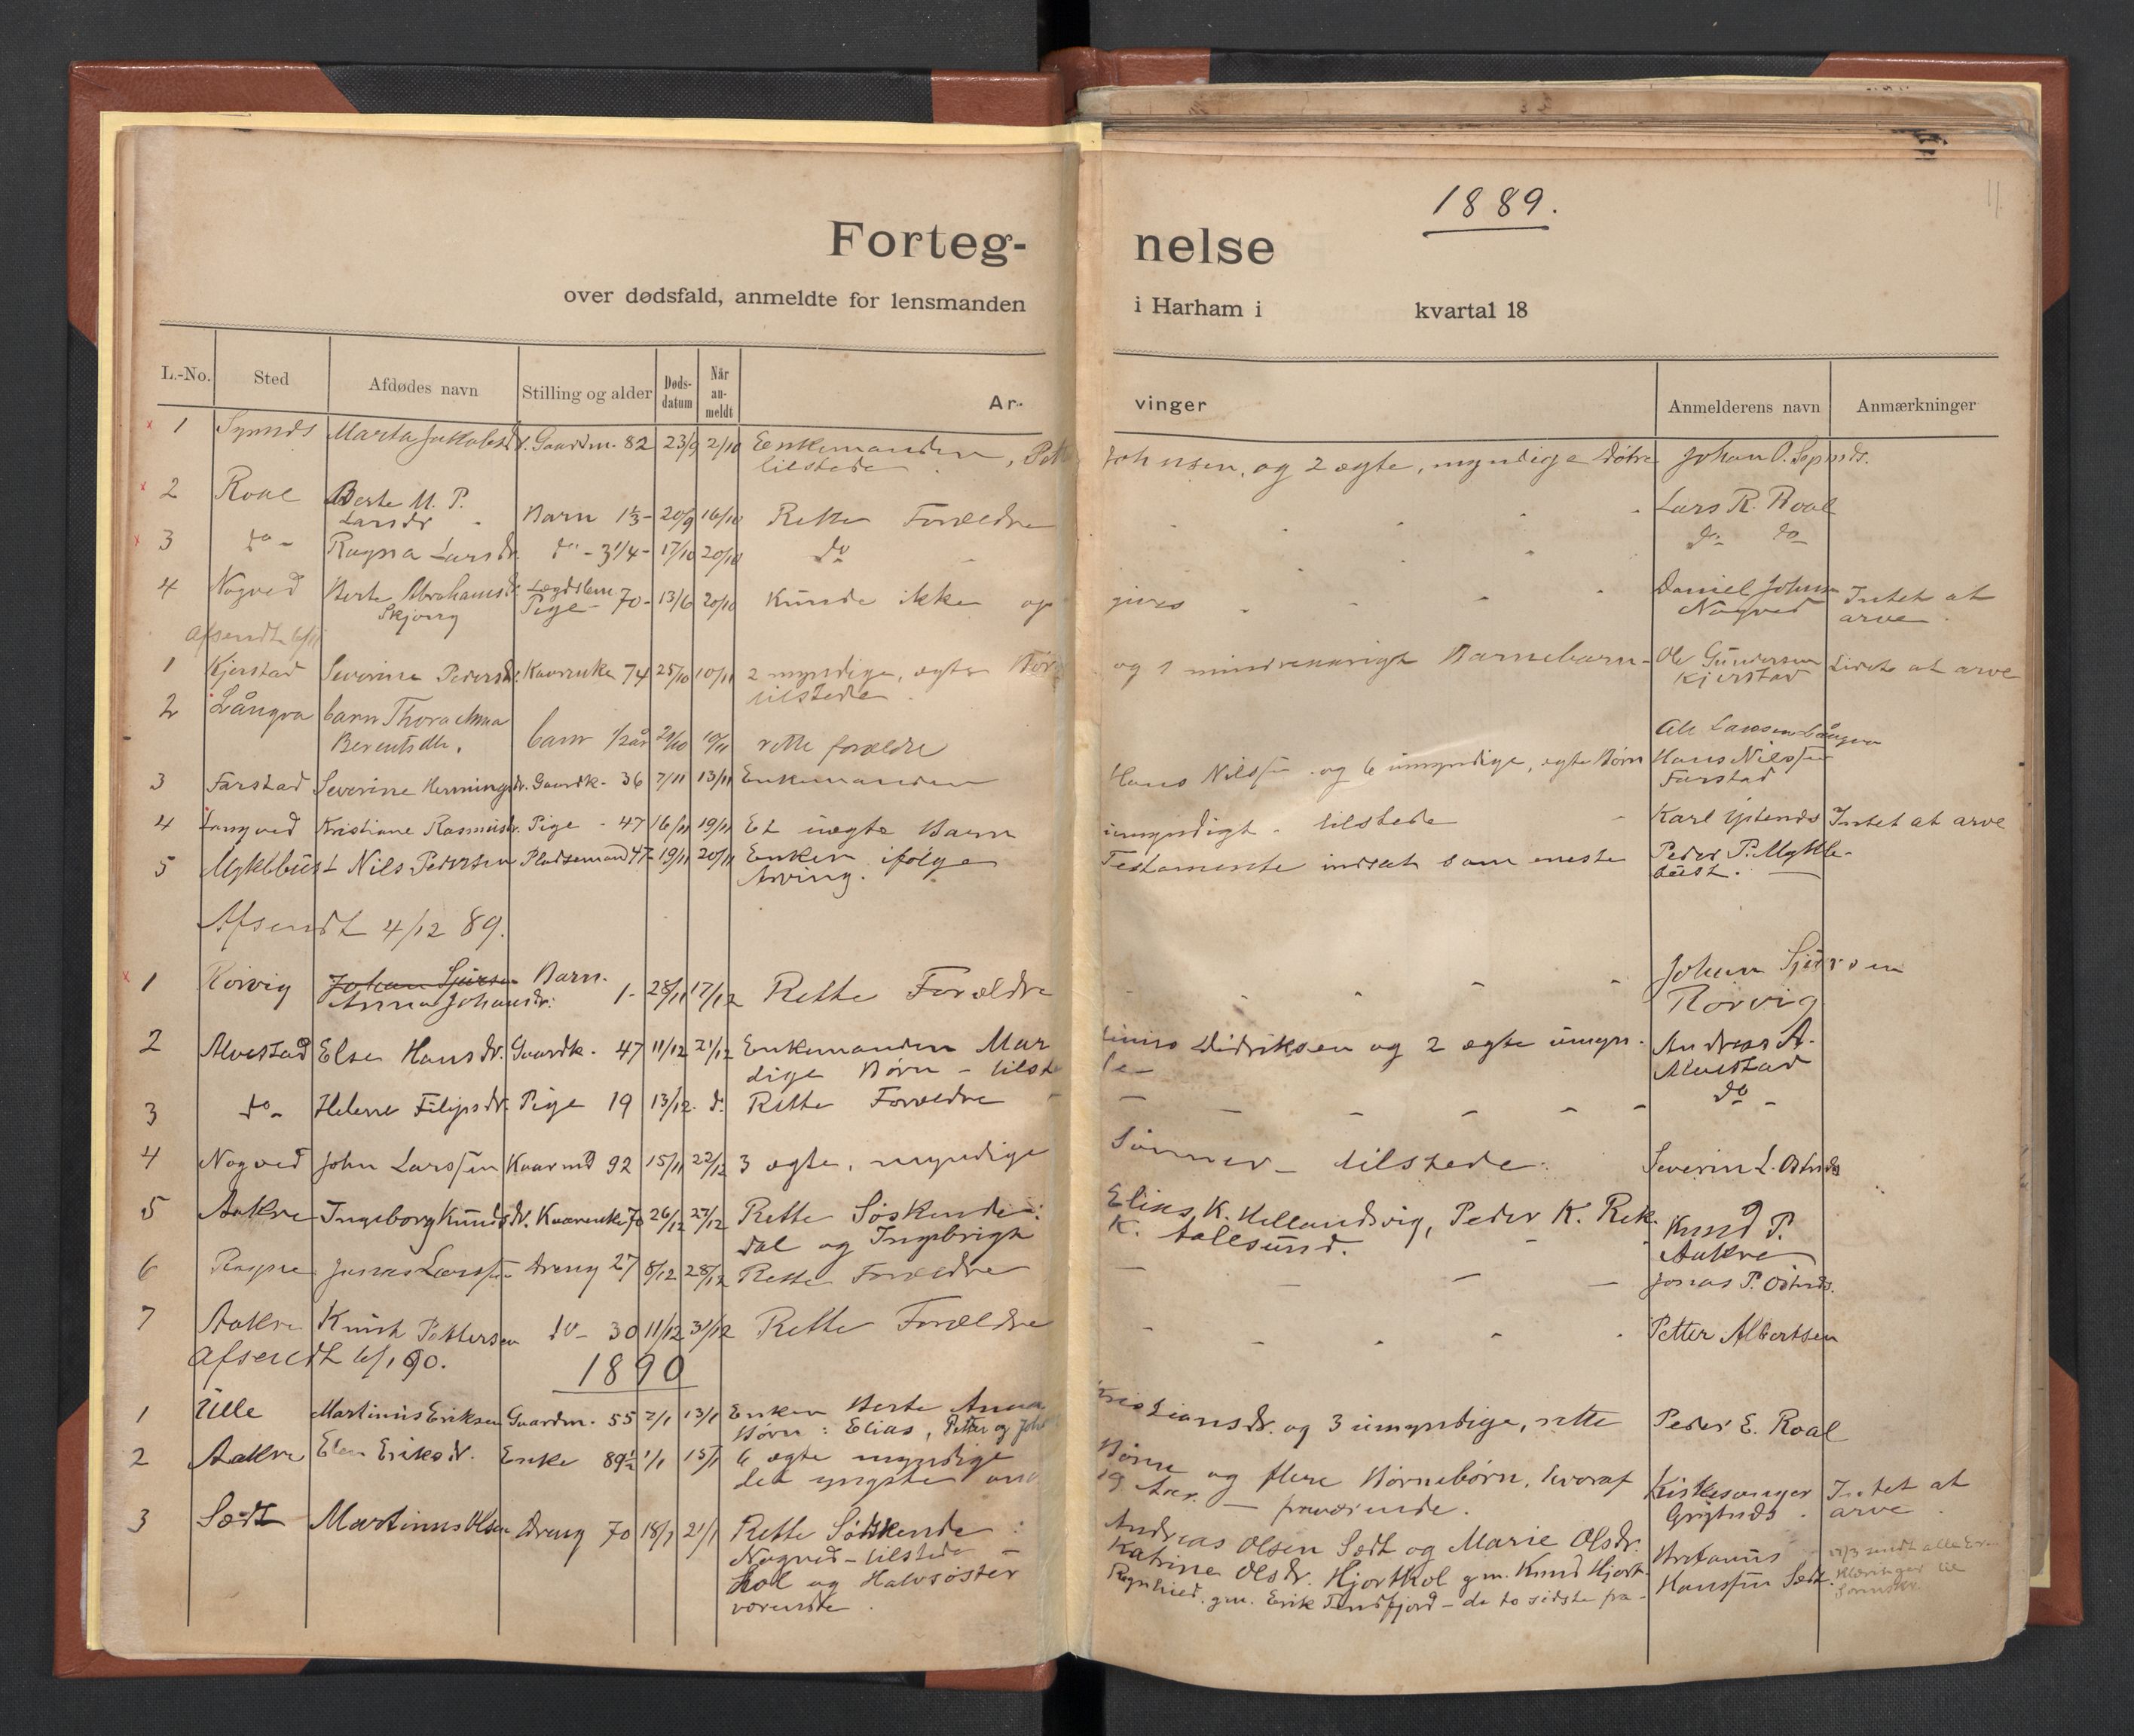 1889.
11
Forteg-nelse
over dødsfald, anmeldte for lensmanden i Harham i kvartal 18
L.-No. Sted Afdødes navn Stilling og alder Døds-datum Når an-meldt Ar-vinger Anmelderens navn Anmærkninger
1 Synnds Marta Jakobsdr. Gaardm. 82 23/9 2/10 Enkemanden, Johnsen, og 2 ægte, myndige Døtre Johan O. Synnds.
tilstede
2 Roal Berte M. P. Lars R. Roal
Larsdr Barn 1 1/3 - 20/9 16/10 Rette Forældre
3 do - Ragna Larsdr do - 3 1/4 - 17/10 20/10 do do do
4 Nogved Berte Abrahamsdr Lægdslem Daniel Johns Intet at
Skjong Pige - 70 - 13/6 20/10 Kunde ikke op gives Nogved arve
Afsendt 6/11
1 Kjerstad Severine Pedersdr. Kaarenke 74 25/10 10/11 2 myndige, ægte Børn og 1 mindreaarigt Barnebarn - Ole Gundersen Lidet at arve
tilstede Kjerstad
2 Långva barn Thora Anna Ole Larsen Långva
Berentsdtr. barn 1/2 år 29/10 10/11 rette forældre
3 Farstad Severine Henningsdr. Gaardk. 36 7/11 13/11 Enkemanden Hans Nilssen og 6 umyndige, ægte Børn Hans Nilssen
Farstad
4 Longved Kristiane Rasmusdr. Pige - 47 16/11 19/11 Et uægte Barn umyndigt - tilstede Karl Ystends Intet at arve
5 Myklbust Nils Pedersen Pladsemand 47 - 19/11 20/11 Enken ifølge Testamente indsat som eneste Peder P. Mykle-
Arving. bust.
Afsendt 4/12 89.
1 Rörvig Johan Sjursen Barn. Johan Sjursen
Anna Johansdr. 1 - 28/11 17/12 Rette Forældre Rörvig
2 Alvestad Else Hansdr. Gaardk. 47 11/12 21/12 Enkemanden Mar tinus Didriksen og 2 ægte umyn- Andreas A.
dige Børn - tilstede - Alvestad
3 do - Helene Filipsdr. Pige 19 13/12 do Rette Forældre do -
4 Nogved John Larssen Kaarmd 92 15/11 22/12 3 ægte, myndige Sønner - tilstede. Severin L. Ostnds
5 Aakre Ingeborg Knudsdr. Kaarenke 70 26/12 27/12 Rette Søskende: Elias K. Hellandsvig, Peder K. Rek- Knud P.
dal og Ingebrigt K. Aalesund. Aakre
6 Rogne Jonas Larssen Dreng 27 8/12 28/12 Rette Forældre Jonas P. Ostnds.
7 Aakre Knut Pettersen do - 30 11/12 31/12 Rette Forældre Petter Albertsen
Afsendt 6/1 90.
1890
1 Ulle Martinus Eriksen Gaardm. 55 2/1 13/1 Enken Berte Anna Kristiansdr. og 3 umyndige, rette Peder E. Roal
Børn: Elias, Petter og Joh
2 Aakre Elen Eriksdr. Enke 89 1/2 1/1 15/1 6 ægte myndige Børn og flere Børnebørn, hvoraf Kirkesanger Intet at
den yngste und 19 Aar. - præværende. Grytnds. arve
3 Sædt Martinus Olsen Dreng 70 18/1 21/1 Rette Søskende: Andreas Olsen Sædt og Marie Olsdr.
Nogved - tilstede - Katrine Olsdr. Hjortkol gm. Knud Hjort-
kol og Halvsöster Ragnhild gm. Erik Tendfjord - de to sidste fra- Hanssen Sædt.
værende.